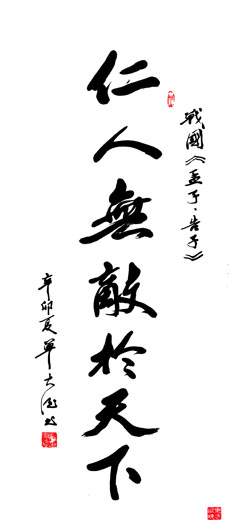 戰國《孟子·告子》
仁人無敵於天下
辛卯夏單大德書